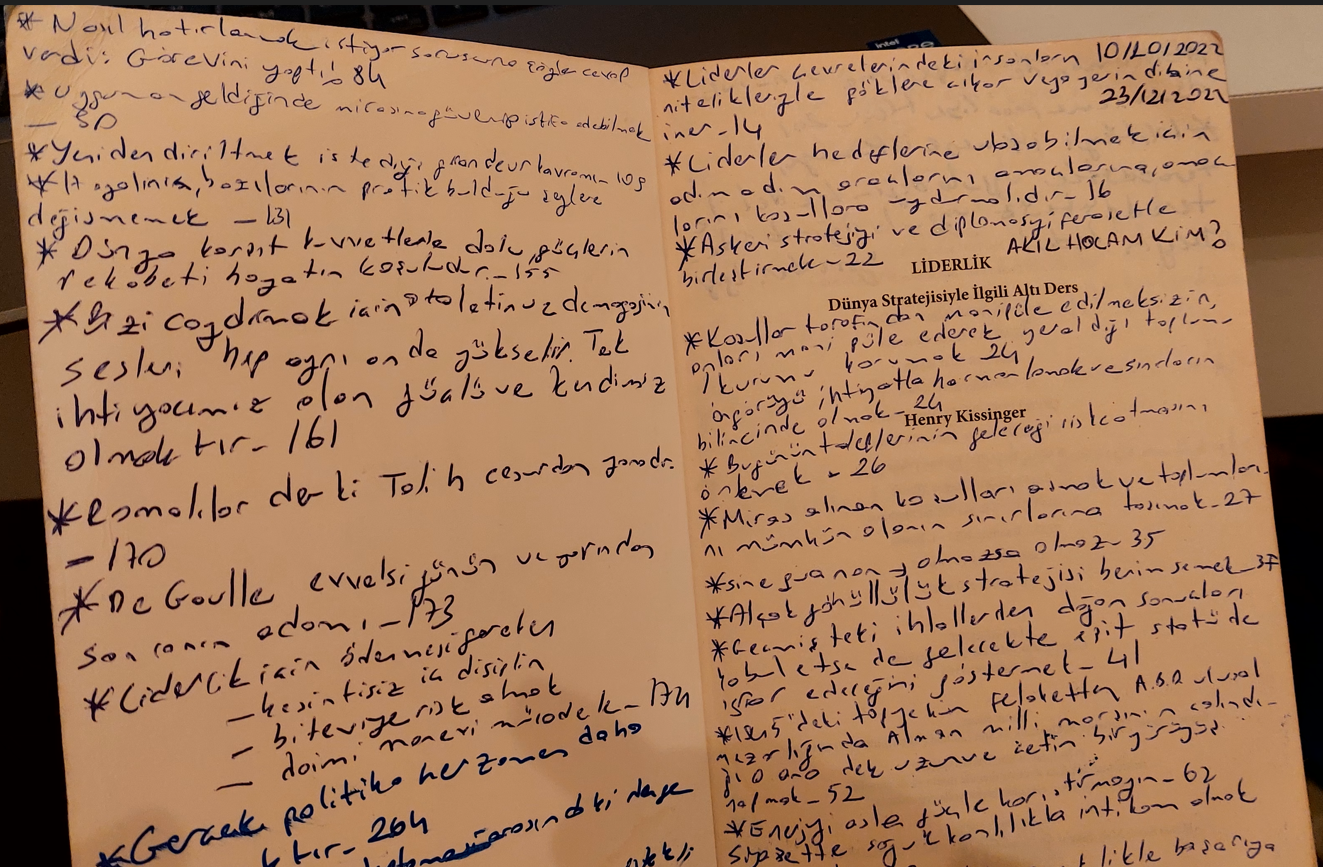 * Nasıl hatırlanmak istiyor sorusuna şöyle cevap
verdi: Görevini yaptı! 84
* Uygun an geldiğinde mirasına güvenip istifa edebilmek
— 90
* Yeniden diriltmek istediği grandeur kavramı – 109
* bazılarının pratik bulduğu şeylere
değişmemek – 131
* Dünya karşıt kuvvetlerle dolu, güçlerin
rekabeti hayatın koşuludur. – 155
* Bizi caydırmak için demagojinin
sesleri hep aynı anda yükselir. Tek
ihtiyacımız olan güçlü ve kendimiz
olmaktır – 161
* Romalılar der ki Talih cesurdan yanadır.
– 170
* De Gaulle evvelsi günün ve yarından
sonranın adamı – 173
* Liderlik için ödenmesi gereken
– kesintisiz iç disiplin
– biteviye risk almak
– daimi manevi mücadele – 174
* Gerçek politika her zaman daha
tır – 264
arasındaki denge
* Liderler çevrelerindeki insanların 10/10/2022
nitelikleriyle göklere çıkar veya yerin dibine
iner – 14 23/12/2021
* Liderler hedeflerine ulaşabilmek için
adım adım araçlarını amaçlarına, amaç
larını koşullara uydurmalıdır – 16
* Askeri stratejiyi ve diplomasiyi ferasetle
birleştirmek – 22 AKIL HOCAM KİM?
LİDERLİK
Dünya Stratejisiyle İlgili Altı Ders
* Koşullar tarafından manipüle edilmeksizin,
onları manipüle ederek yer aldığı toplum
/ kurumu korumak 24
öngörüyü ihtiyatla harmanlamak ve sınırların
bilincinde olmak – 24
Henry Kissinger
* Bugünün hedeflerinin geleceği riske atmasını
önlemek – 26
* Miras alınan koşulları aşmak ve toplumları
nı mümkün olanın sınırlarına taşımak – 27
* sine qua non → olmazsa olmaz – 35
* Alçak gönüllülük stratejisi benimsemek – 37
* Geçmişteki ihlallerden doğan sonuçları
kabul etse de gelecekte eşit statüde
ısrar edeceğini göstermek – 41
* 1945'deki felaketten A.B.D ulusal
mezarlığında Alman milli marşının çalındı-
ğı o ana dek uzun ve çetin bir yürüyüş
– 52
* Enerjiyi asla güçle karıştırmayın – 62
Siyasette soğukkanlılıkla intikam almak
başarıya